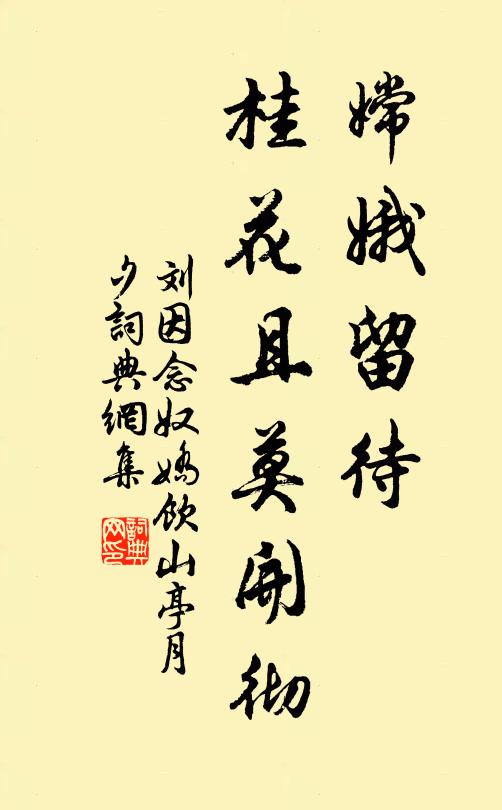 嫦娥留待
桂花且莫開彻
刘因念奴嬌飲山亭月
夕詞典網集
詞典
网印